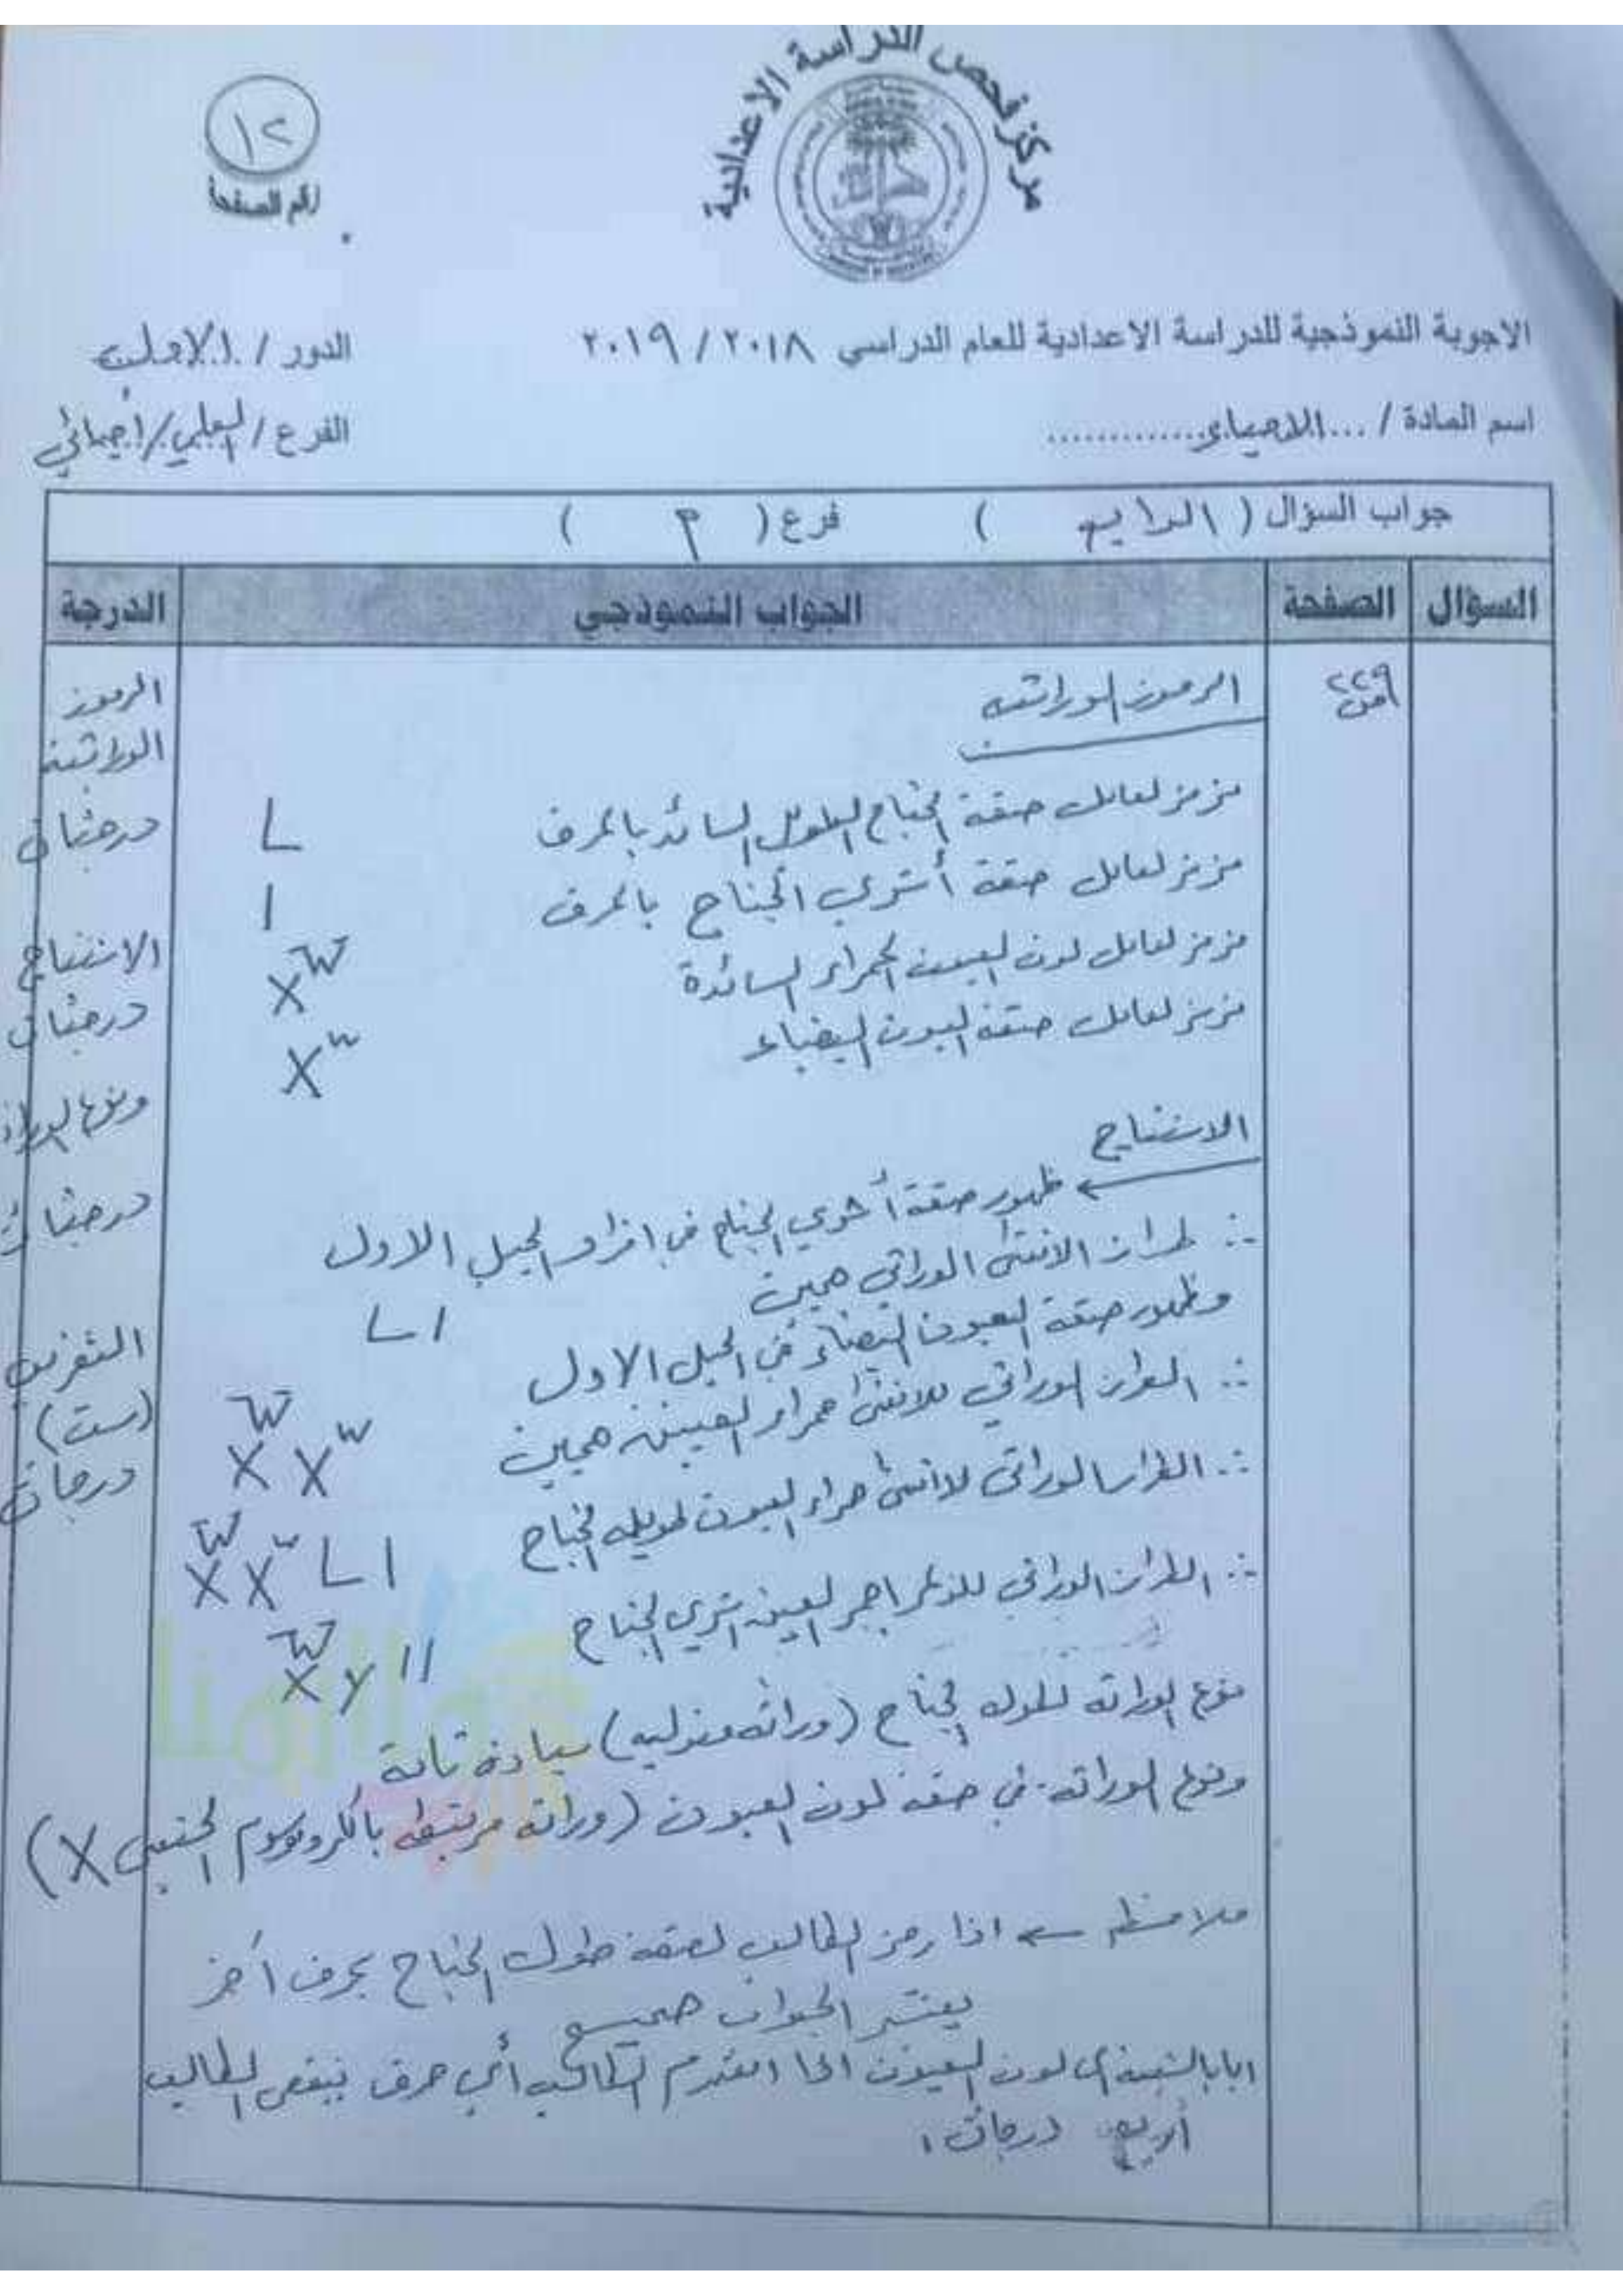 مركز فحص الدراسة الاعدادية
١٢
رقم الصفحة
الاجوبة النموذجية للدراسة الاعدادية للعام الدراسي ٢٠١٨ / ٢٠١٩
الدور / الاول
اسم المادة / ...الاحياء.............
الفرع / العلمي / احيائي
جواب السؤال ( الرابع ) فرع ( P )
السؤال الصفحة الجواب النموذجي الدرجة
٢٢٩
الرموز الوراثية
نرمز لعامل صفة الجناح الطويل السائد بالحرف L
نرمز لعامل صفة أثري الجناح بالحرف l
نرمز لعامل لون العيون الحمراء السائدة X^W
نرمز لعامل صفة العيون البيضاء X^w
الاستنتاج
← ظهور صفة أثري الجناح في افراد الجيل الاول
∴ طراز الانثى الوراثي هجين L l
وظهور صفة العيون البيضاء في الجيل الاول
∴ الطراز الوراثي للانثى حمراء العينين هجين X^W X^w
∴ الطراز الوراثي للانثى حمراء العيون طويلة الجناح X^W X^w L l
∴ الطراز الوراثي للذكر احمر العين اثري الجناح X^W y l l
نوع الوراثة لطول الجناح (وراثة مندلية) سيادة تامة
ونوع الوراثة في صفة لون العيون (وراثة مرتبطة بالكروموسوم الجنسي X)
ملاحظة ← اذا رمز الطالب لصفة طول الجناح بحرف آخر
يعتبر الجواب صحيح
اما بالنسبة الى لون العيون اذا استخدم الطالب أي حرف ينقص الطالب
أربع درجات.
الرموز
الوراثية
درجتان
الاستنتاج
درجتان
ونوع الوراثة
درجتان
(ست)
درجات